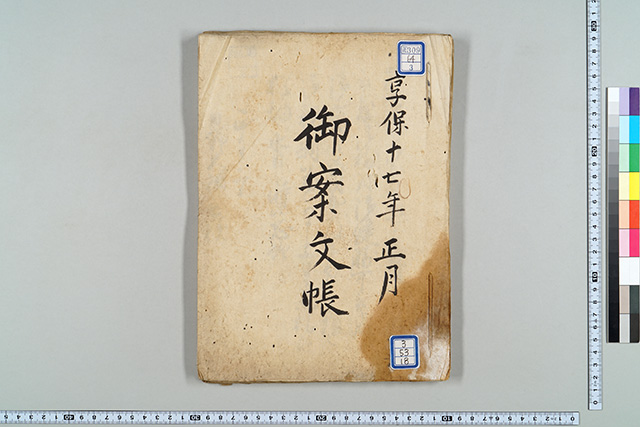 享保十七年正月
御案文帳
14
3
3
53
18